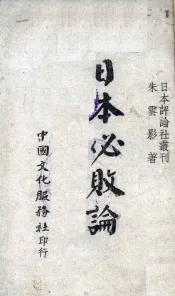 日本評論社叢刊
朱雲影著
日本必敗論
中國文化服務社印行